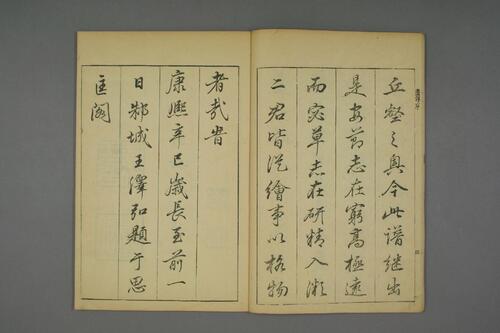 丘壑之奧今此譜継出
是安節志在窮高極遠
而宓草志在研精入微
二君皆從繪事以格物
者哉旹
康熙辛巳歲長至前一
日邾城王澤弘題于思
匡閣